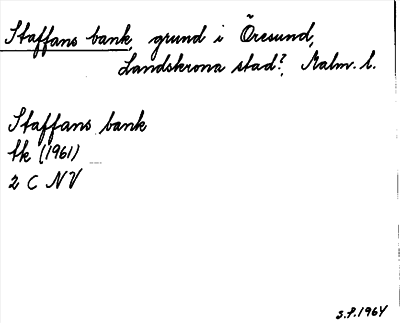 Staffans bank, grund i Öresund,
Landskrona stad?, Malm. l.
Staffans bank
tk (1961)
2 C NV
S.P. 1964